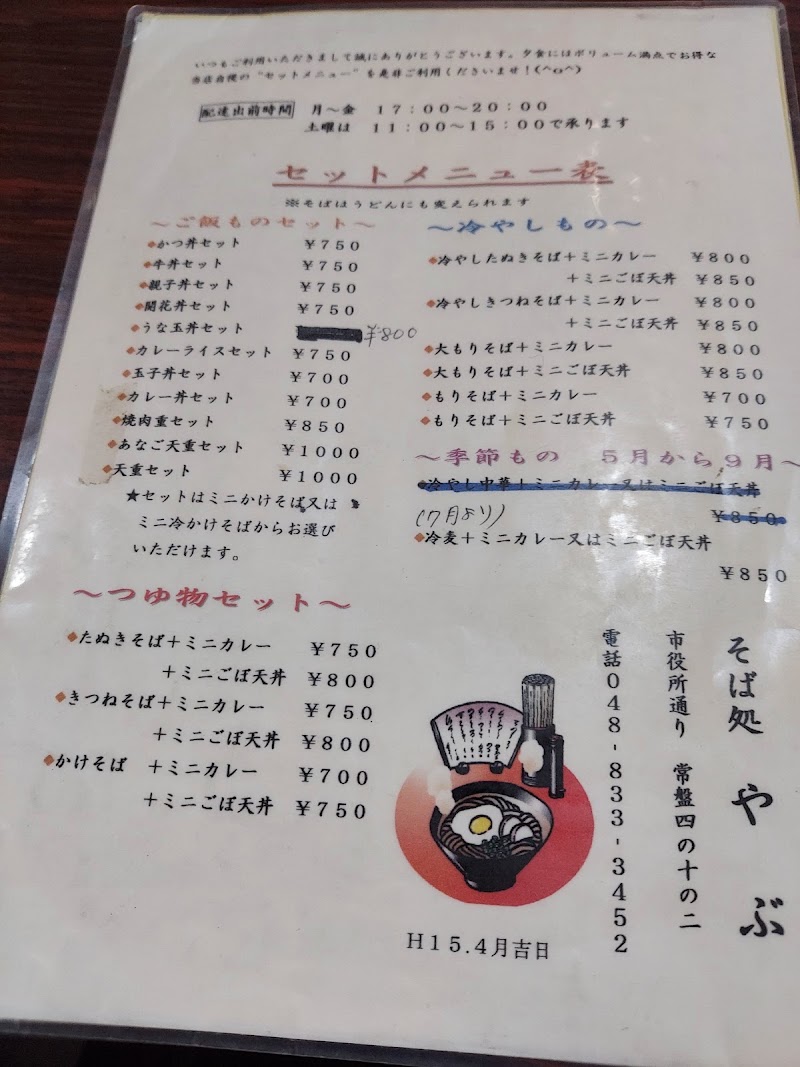 いつもご利用いただきまして誠にありがとうございます。夕食にはボリューム満点でお得な
当店自慢の"セットメニュー"を是非ご利用くださいませ!(^o^)
配達出前時間 月〜金 17:00〜20:00
土曜は 11:00〜15:00で承ります
セットメニュー表
※そばはうどんにも変えられます
〜ご飯ものセット〜
◆かつ丼セット ¥750
◆牛丼セット ¥750
◆親子丼セット ¥750
◆開花丼セット ¥750
◆うな玉丼セット ¥800
◆カレーライスセット ¥750
◆玉子丼セット ¥700
◆カレー丼セット ¥700
◆焼肉重セット ¥850
◆あなご天重セット ¥1000
◆天重セット ¥1000
★セットはミニかけそば又は
ミニ冷かけそばからお選び
いただけます。
〜つゆ物セット〜
◆たぬきそば+ミニカレー ¥750
+ミニごぼ天丼 ¥800
◆きつねそば+ミニカレー ¥750
+ミニごぼ天丼 ¥800
◆かけそば +ミニカレー ¥700
+ミニごぼ天丼 ¥750
〜冷やしもの〜
◆冷やしたぬきそば+ミニカレー ¥800
+ミニごぼ天丼 ¥850
◆冷やしきつねそば+ミニカレー ¥800
+ミニごぼ天丼 ¥850
◆大もりそば+ミニカレー ¥800
◆大もりそば+ミニごぼ天丼 ¥850
◆もりそば+ミニカレー ¥700
◆もりそば+ミニごぼ天丼 ¥750
〜季節もの 5月から9月〜
◆冷やし中華+ミニカレー又はミニごぼ天丼
¥850
(7月より)
◆冷麦+ミニカレー又はミニごぼ天丼
¥850
そば処 やぶ
市役所通り 常盤四の十の二
電話048-833-3452
H15.4月吉日